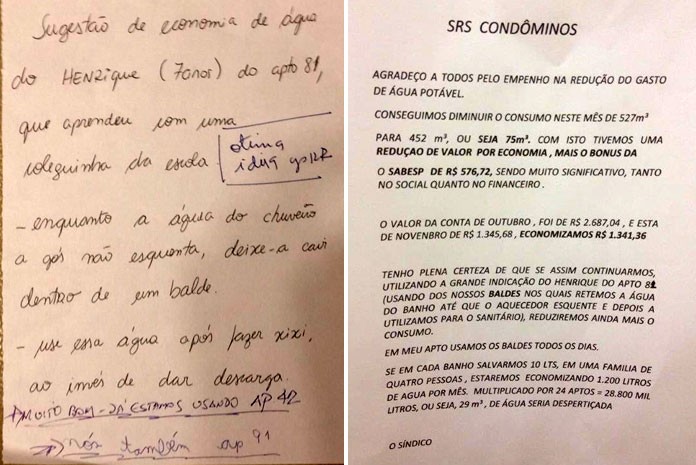 Sugestão de economia de água
do HENRIQUE (7anos) do apto 81,
que aprendeu com uma
coleguinha da escola
otima
idéia
- enquanto a água do chuveiro
a gás não esquenta, deixe-a cair
dentro de um balde.
- use essa água após fazer xixi,
ao invés de dar descarga.
MUITO BOM - JÁ ESTAMOS USANDO AP 42
Nós também ap 91
SRS CONDÔMINOS
AGRADEÇO A TODOS PELO EMPENHO NA REDUÇÃO DO GASTO
DE ÁGUA POTÁVEL.
CONSEGUIMOS DIMINUIR O CONSUMO NESTE MÊS DE 527m³
PARA 452 m³, OU SEJA 75m³. COM ISTO TIVEMOS UMA
REDUÇAO DE VALOR POR ECONOMIA , MAIS O BONUS DA
O SABESP DE R$ 576,72, SENDO MUITO SIGNIFICATIVO, TANTO
NO SOCIAL QUANTO NO FINANCEIRO .
O VALOR DA CONTA DE OUTUBRO , FOI DE R$ 2.687,04 , E ESTA
DE NOVENBRO DE R$ 1.345,68 , ECONOMIZAMOS R$ 1.341,36
TENHO PLENA CERTEZA DE QUE SE ASSIM CONTINUARMOS,
UTILIZANDO A GRANDE INDICAÇÃO DO HENRIQUE DO APTO 81
(USANDO DOS NOSSOS BALDES NOS QUAIS RETEMOS A ÁGUA
DO BANHO ATÉ QUE O AQUECEDOR ESQUENTE E DEPOIS A
UTILIZAMOS PARA O SANITÁRIO), REDUZIREMOS AINDA MAIS O
CONSUMO.
EM MEU APTO USAMOS OS BALDES TODOS OS DIAS.
SE EM CADA BANHO SALVARMOS 10 LTS, EM UMA FAMILIA DE
QUATRO PESSOAS , ESTAREMOS ECONOMIZANDO 1.200 LITROS
DE AGUA POR MÊS. MULTIPLICADO POR 24 APTOS = 28.800 MIL
LITROS, OU SEJA, 29 m³ , DE ÁGUA SERIA DESPERTIÇADA
O SÍNDICO